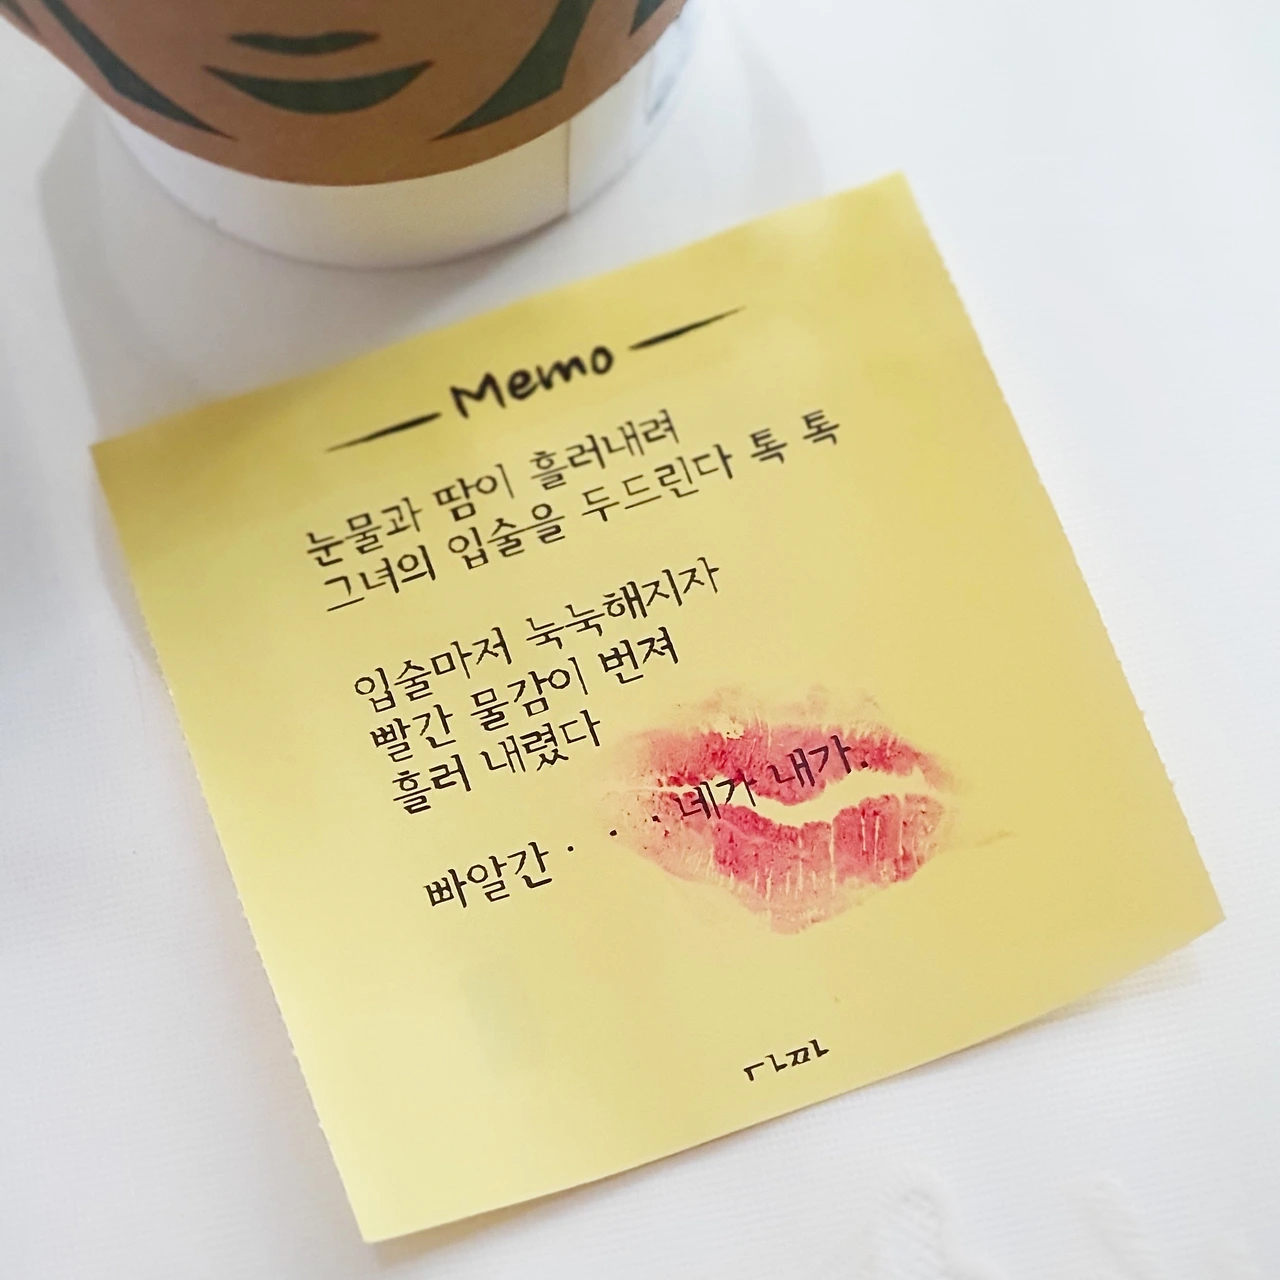 Memo
눈물과 땀이 흘러내려
그녀의 입술을 두드린다 톡 톡
입술마저 눅눅해지자
빨간 물감이 번져
흘러 내렸다
빠알간 . . . 네가 내가.